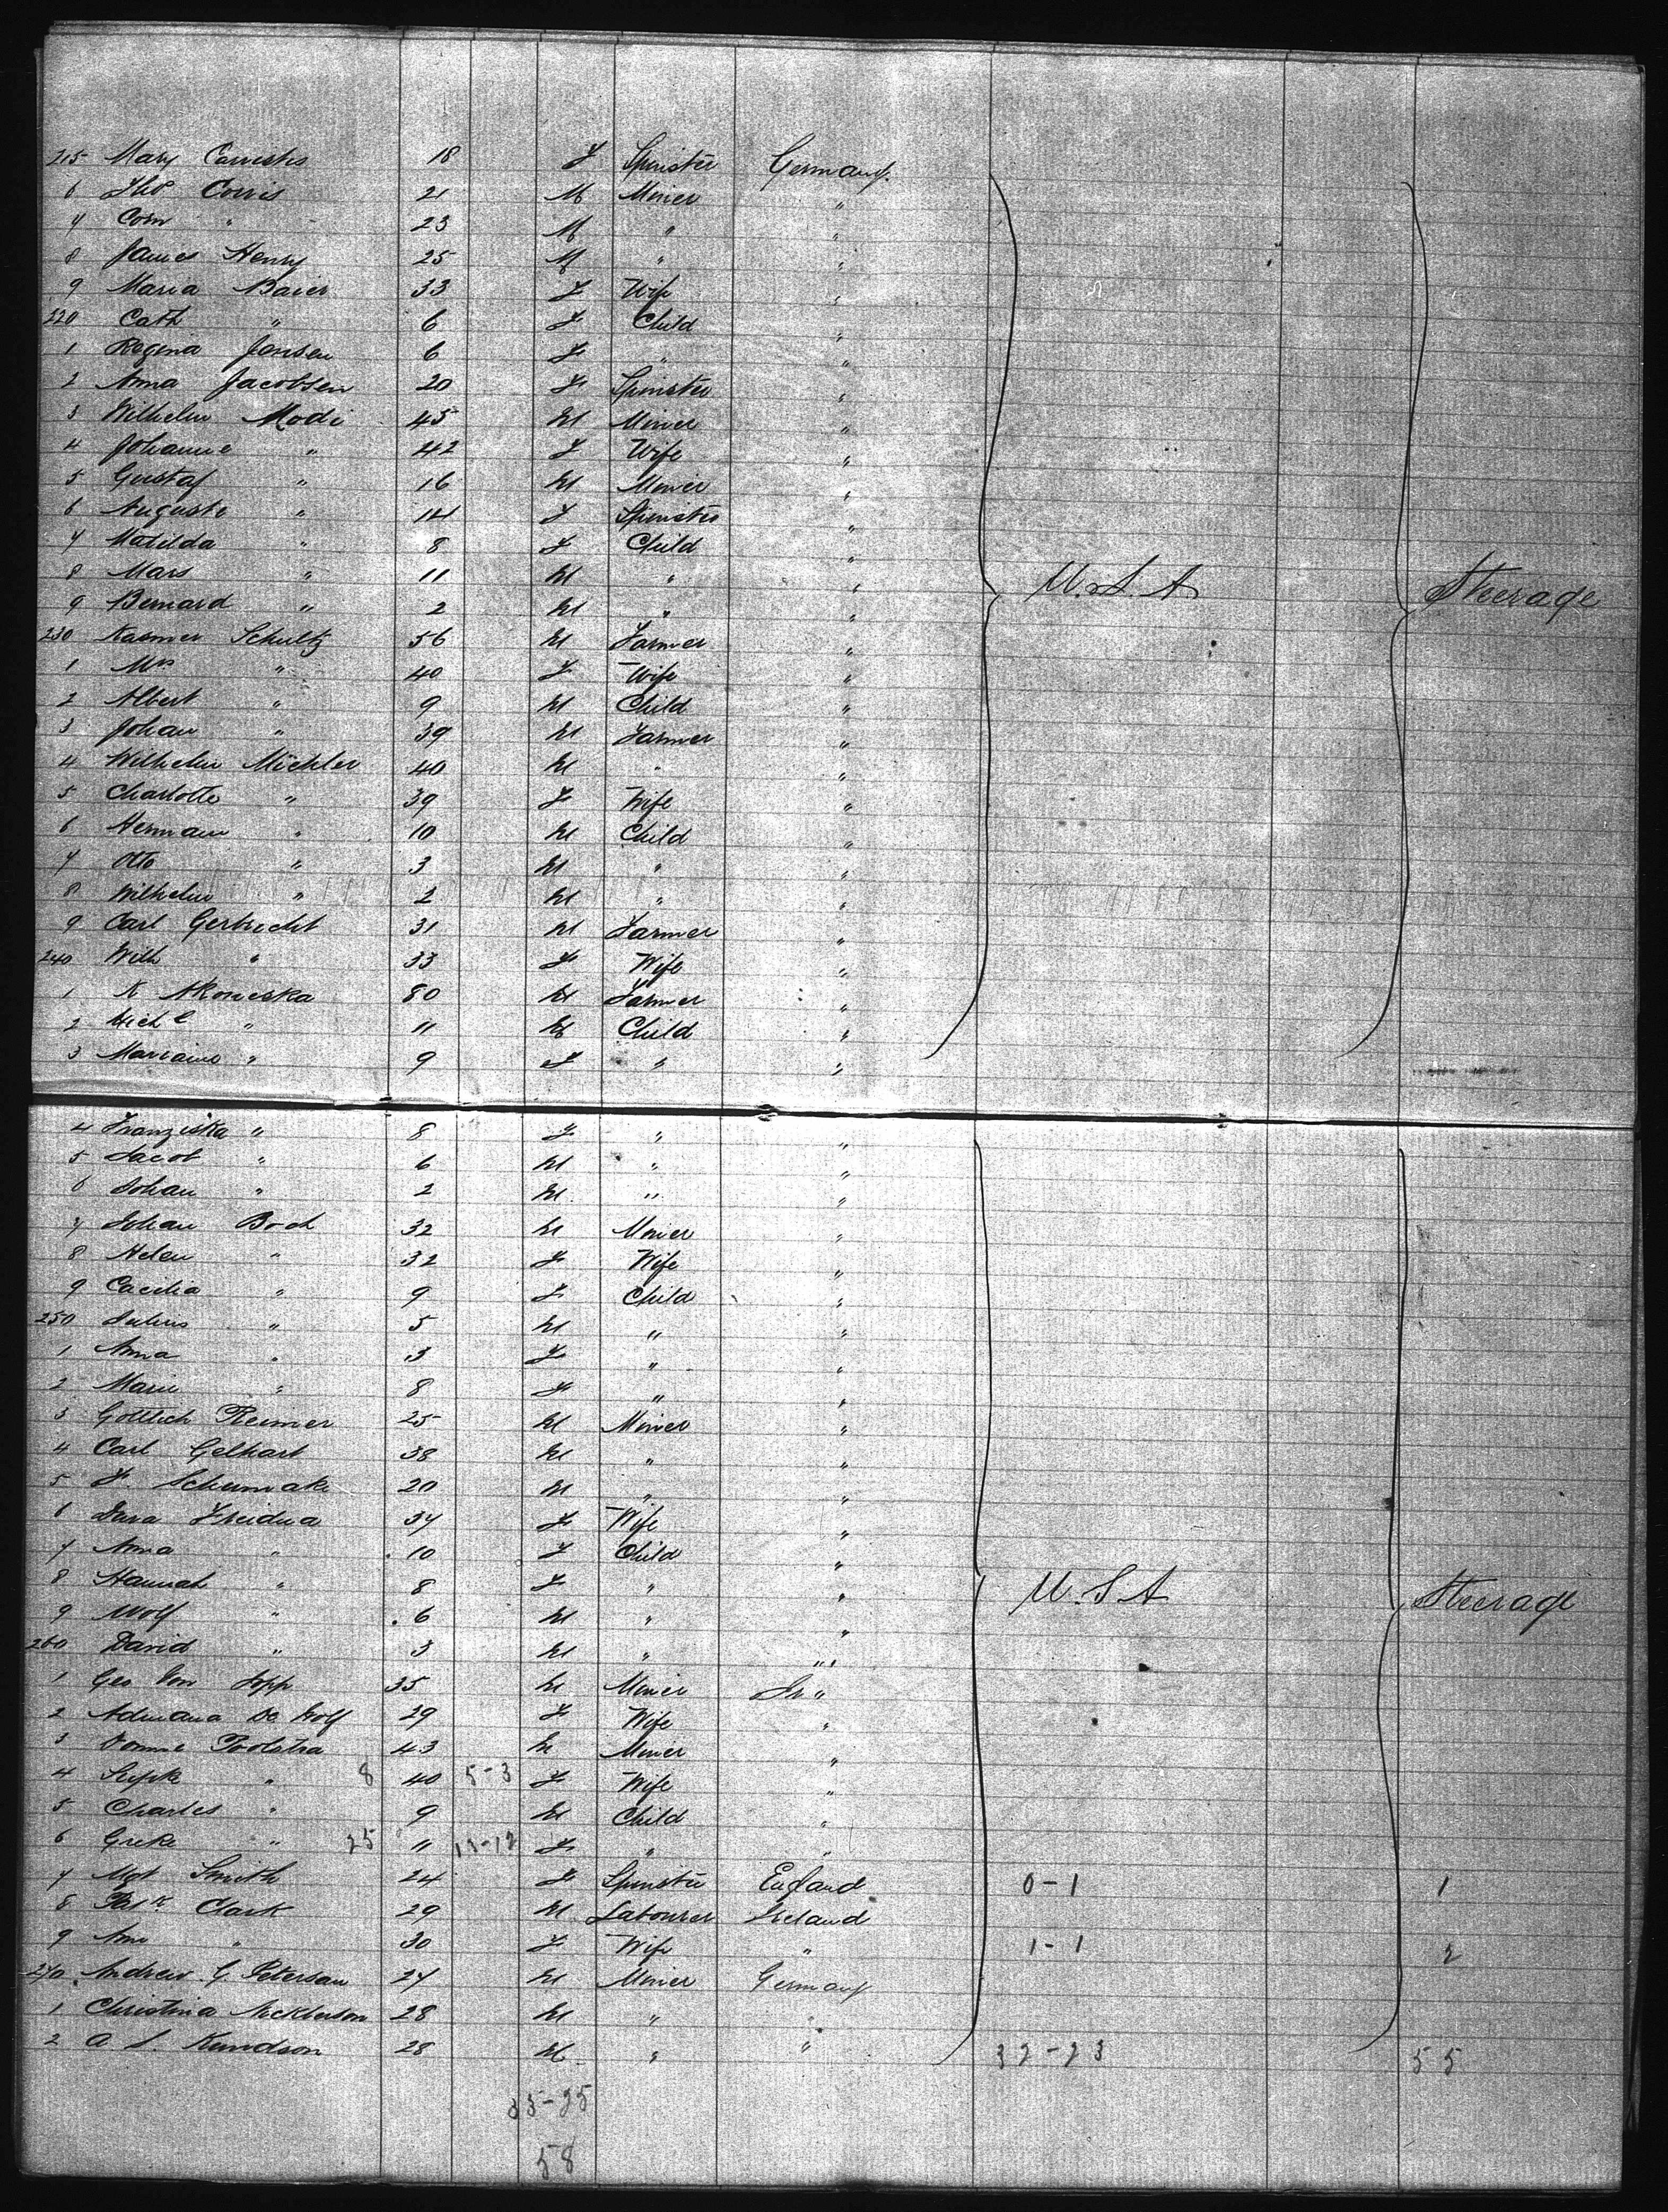 215 Mary Corristis 18 F Spinster Germany.
6 Tho^s Corris 21 M Miner "
7 Corn " 23 M " "
8 James Henry 25 M " "
9 Maria Baier 33 F Wife "
220 Cath " 6 F Child "
1 Regina Jensen 6 F " "
2 Anna Jacobsen 20 F Spinster "
3 Wilhelm Modi 45 M Miner "
4 Johanne " 42 F Wife "
5 Gustaf " 16 M Miner "
6 Auguste " 14 F Spinster "
7 Matilda " 8 F Child "
8 Mars " 11 M " " U.S.A Steerage
9 Bernard " 2 M " "
230 Kasmer Schultz 56 M Farmer "
1 Mrs " 40 F Wife "
2 Albert " 9 M Child "
3 Johan " 39 M Farmer "
4 Wilhelm Michler 40 M " "
5 Charlotte " 39 F Wife "
6 Hermann " 10 M Child "
7 Otto " 3 M " "
8 Wilhelm " 2 M " "
9 Carl Gerbrecht 31 M Farmer "
240 Wilh " 33 F Wife "
1 K Akonieska 80 M Farmer "
2 Michl " 11 M Child "
3 Marianne " 9 F " "
4 Franziska " 8 F " "
5 Jacob " 6 M " "
6 Johan " 2 M " "
7 Johan Boch 32 M Miner "
8 Helen " 32 F Wife "
9 Cacilia " 9 F Child "
250 Julius " 5 M " "
1 Anna " 3 F " "
2 Marie " 8 F " "
3 Gottlieb Riemer 25 M Miner "
4 Carl Gelhart 38 M " "
5 F. Schumake 20 M " "
6 34 F Wife "
7 Anna " 10 F Child "
8 Hannah " 8 F " " U.S.A Steerage
9 Wolf " 6 M " "
260 David " 3 M " "
1 Geo Von Lopp 35 M Miner "
2 Adriana De Wolf 29 F Wife "
3 Toolstra 43 M Miner "
4 " 8 40 5-3 F Wife "
5 Charles " 9 M Child "
6 Greke " 25 11 13-12 F " "
7 Mgt Smith 24 F Spinster England 0-1 1
8 Patk Clark 29 M Labourer Ireland
9 Ann " 30 F Wife " 1-1 2
270 Andrew G Peterson 27 M Miner Germany
1 Christina 28 M " "
2 A. S. Kundson 28 M " " 32-23 55
33-25
58